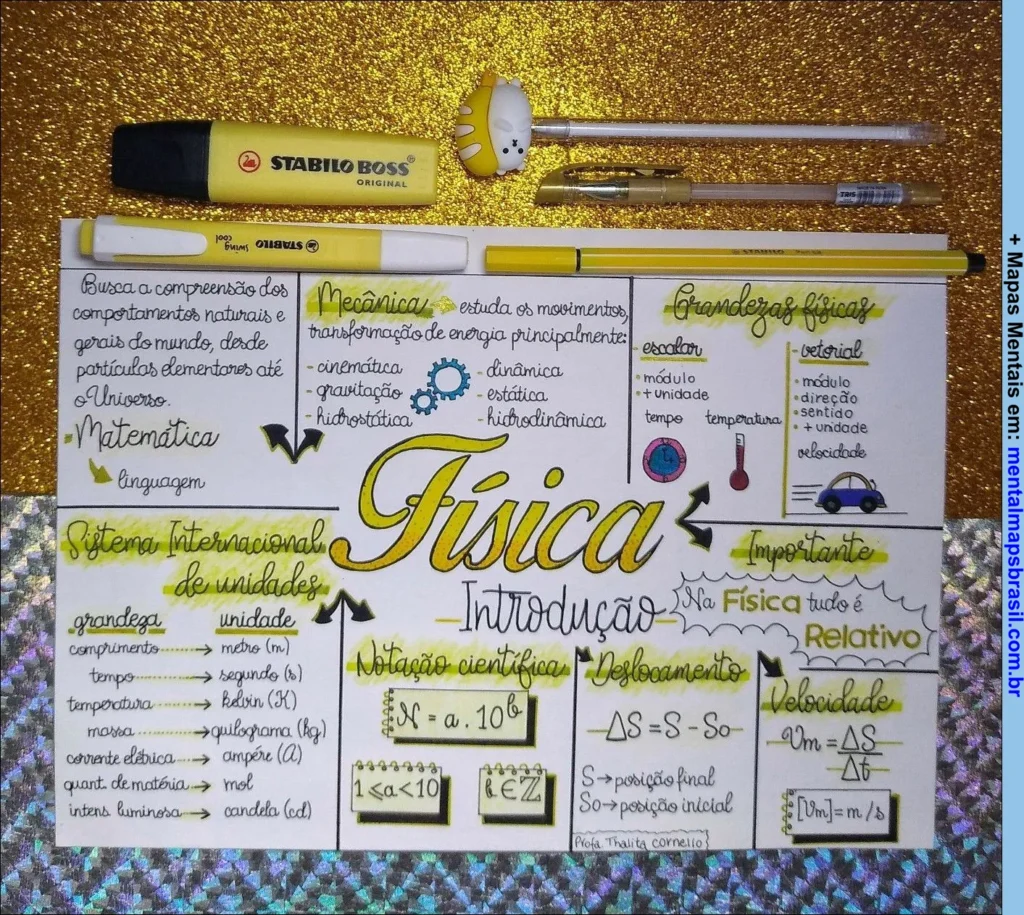 STABILO BOSS®
ORIGINAL
TRIS
STABILO
swing
cool
STABILO
Busca a compreensão dos
comportamentos naturais e
gerais do mundo, desde
partículas elementares até
o Universo.
Matemática
linguagem
Mecânica estuda os movimentos,
transformação de energia principalmente:
- cinemática
- gravitação
- hidrostática
- dinâmica
- estática
- hidrodinâmica
Grandezas físicas
- escalar
• módulo
• + unidade
tempo temperatura
- vetorial
• módulo
• direção
• sentido
• + unidade
velocidade
Física
Introdução
Sistema Internacional
de unidades
grandeza unidade
comprimento → metro (m)
tempo → segundo (s)
temperatura → kelvin (K)
massa → quilograma (kg)
corrente elétrica → ampére (A)
quant. de matéria → mol
intens luminosa → candela (cd)
Importante
Na Física tudo é
Relativo
Notação científica
N = a . 10^b
1 ⩽ a < 10
b ∈ ℤ
Deslocamento
ΔS = S - So
S → posição final
So → posição inicial
Profa. Thalita Cornelio
Velocidade
Vm = ΔS
Δt
[Vm] = m/s
+ Mapas Mentais em: mentalmapsbrasil.com.br